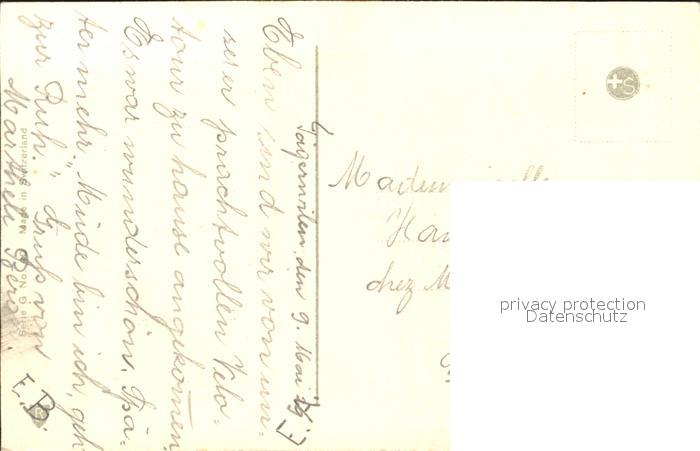 Tägerwilen, den 9. Mai
Eben sind wir von un-
serer prachtvollen Velo-
tour zu hause angekommen.
Es war wunderschön. Spä-
ter mehr. "Müde bin ich, geh'
zur Ruh." Gruß von
Martheli
E. B.
Serie G No
Made in Switzerland
chez M
privacy protection
Datenschutz